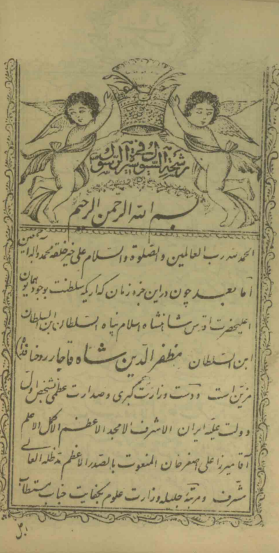 بسم الله الرحمن الرحیم
الحمد لله رب العالمین والصلوة والسلام علی خیر خلقه محمد وآله اجمعین
اما بعد چون در این خرد زمان که اریکه سلطنت بوجود همایون
اعلیحضرت اقدس شاهنشاه اسلام پناه السلطان بن السلطان
ابن السلطان مظفر الدین شاه قاجار روحنا فداه
مزین است و دست وزارت کبری و صدارت عظمی بشخص اول
دولت علیه ایران الاشرف الامجد الاعظم الاکمل الاعلم
آقا میرزا علی اصغر خان المنعوت بالصدر الاعظم مد ظله العالی
مشرف و مرتبه جلیله وزارت علوم بکفایت جناب مستطاب